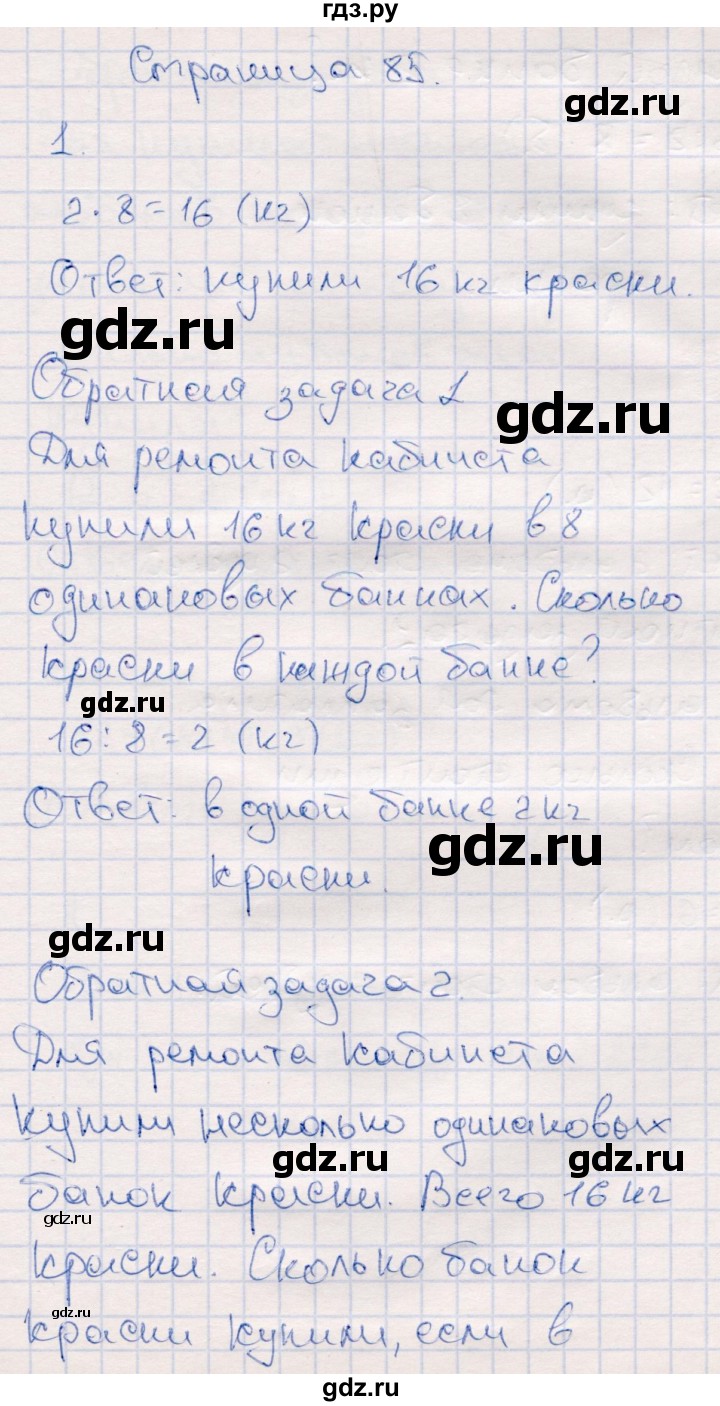 гдз.ру
Страница 85.
gdz.ru
1.
2 · 8 = 16 (кг)
Ответ: купили 16 кг краски.
gdz.ru
Обратная задача 1
gdz.ru
Для ремонта кабинета
купили 16 кг краски в 8
одинаковых банках. Сколько
краски в каждой банке?
gdz.ru
16 : 8 = 2 (кг)
Ответ: в одной банке 2 кг
gdz.ru
краски.
gdz.ru
Обратная задача 2.
Для ремонта кабинета
купили несколько одинаковых
gdz.ru
gdz.ru
банок краски. Всего 16 кг
gdz.ru
краски. Сколько банок
gdz.ru
краски купили, если в
gdz.ru